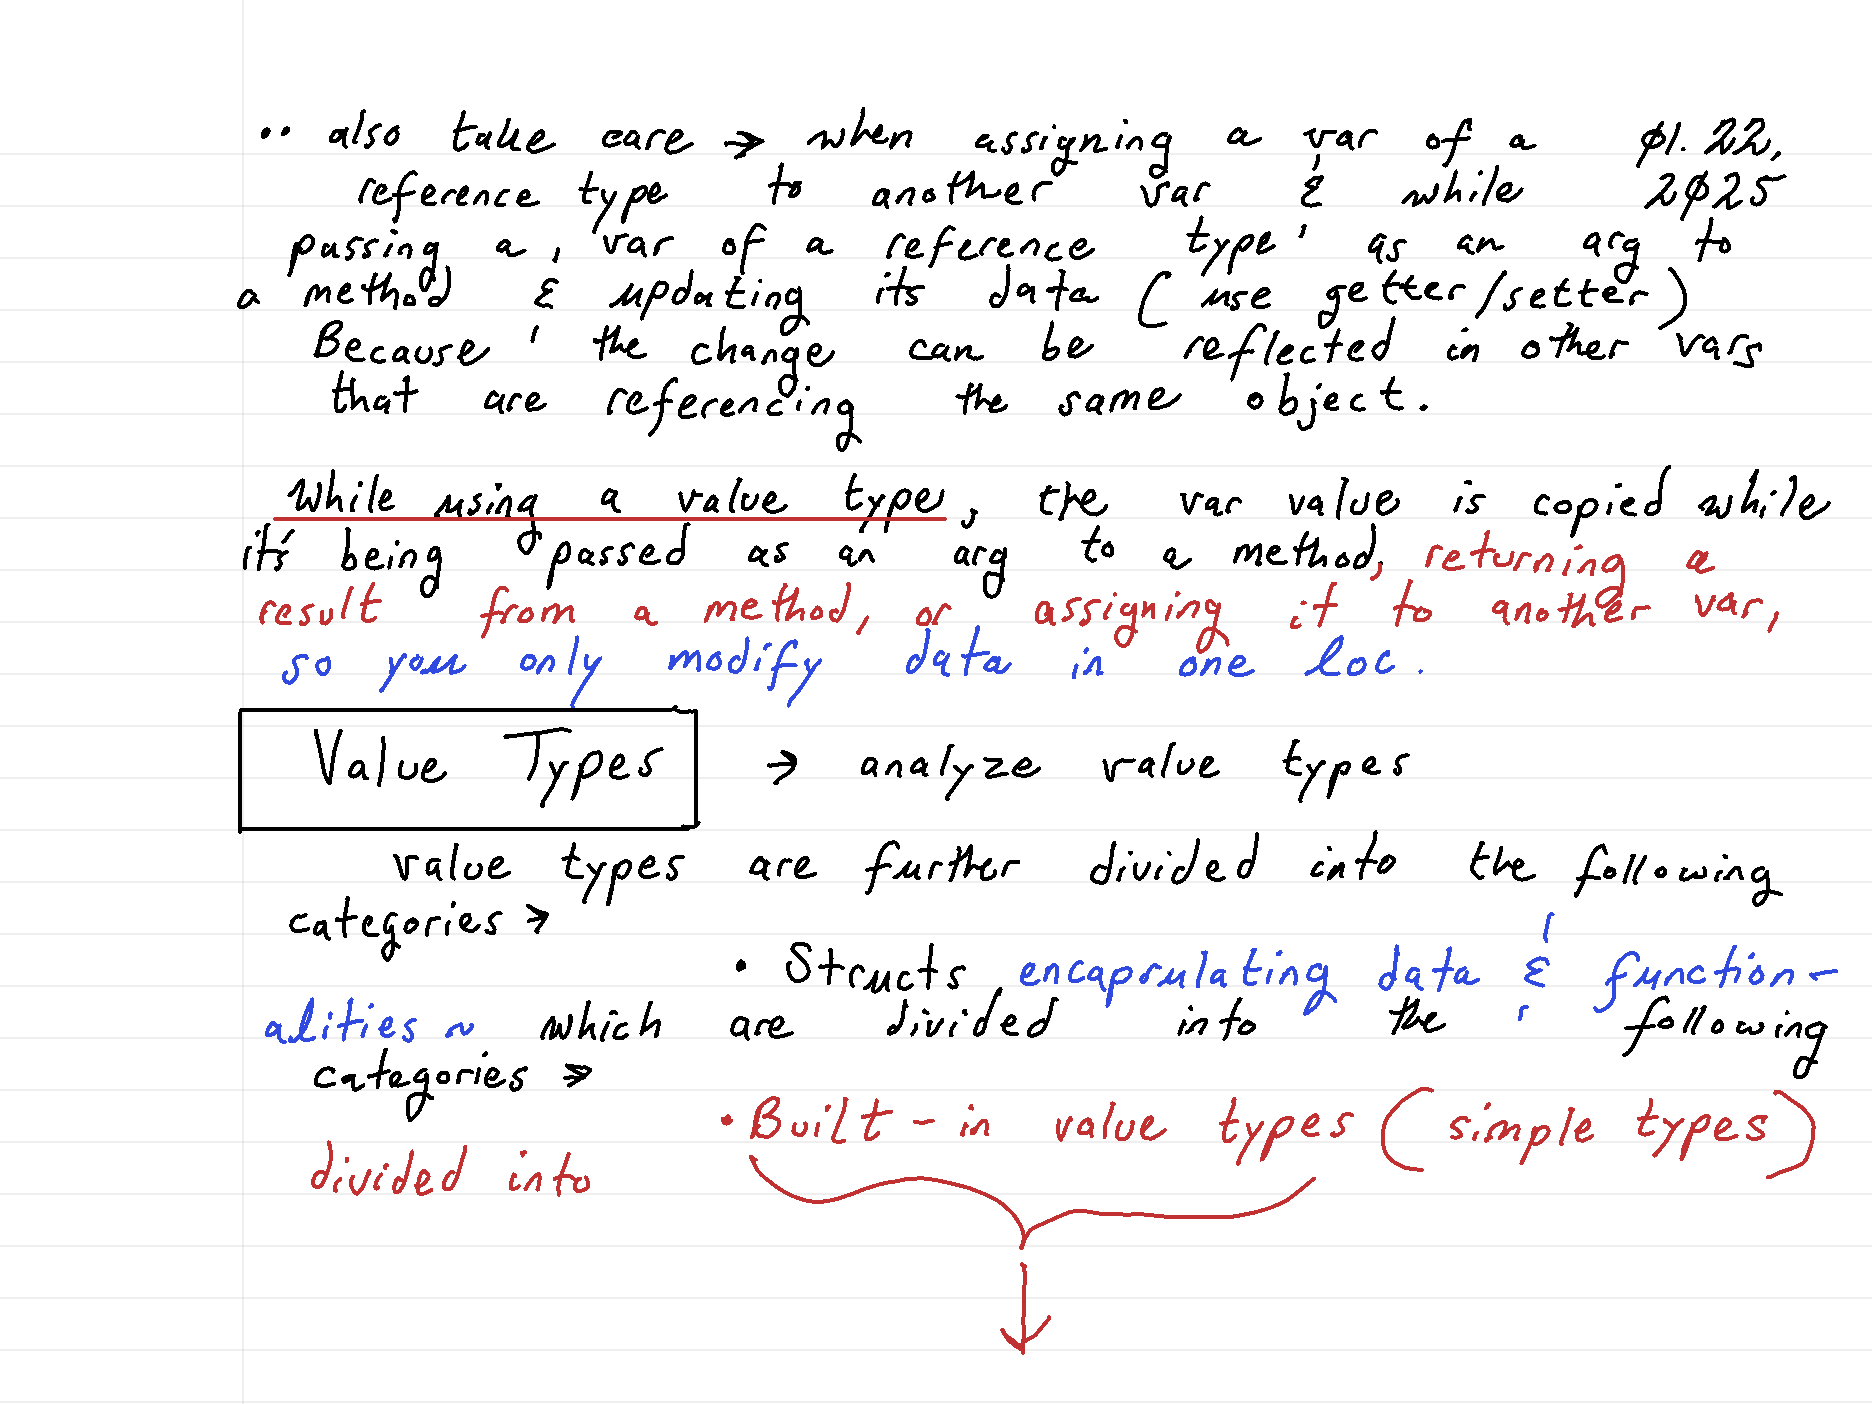 •• also take care → when assigning a var of a Ø1.22,
reference type to another var & while 2Ø25
passing a var of a reference type as an arg to
a method & updating its data (use getter/setter)
Because the change can be reflected in other vars
that are referencing the same object.
While using a value type, the var value is copied while
it's being passed as an arg to a method, returning a
result from a method, or assigning it to another var,
so you only modify data in one loc.
Value Types → analyze value types
value types are further divided into the following
categories →
• Structs encapsulating data & function-
alities ~ which are divided into the following
categories →
• Built-in value types (simple types)
divided into